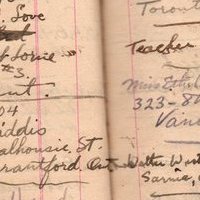 Love
Lorne
#3.
nt.
04
iddis
alhousie, St.
rantford, Ont.
Toronto
Teacher
Miss Eth
323-8
Vanc
Walter
Sarnia,